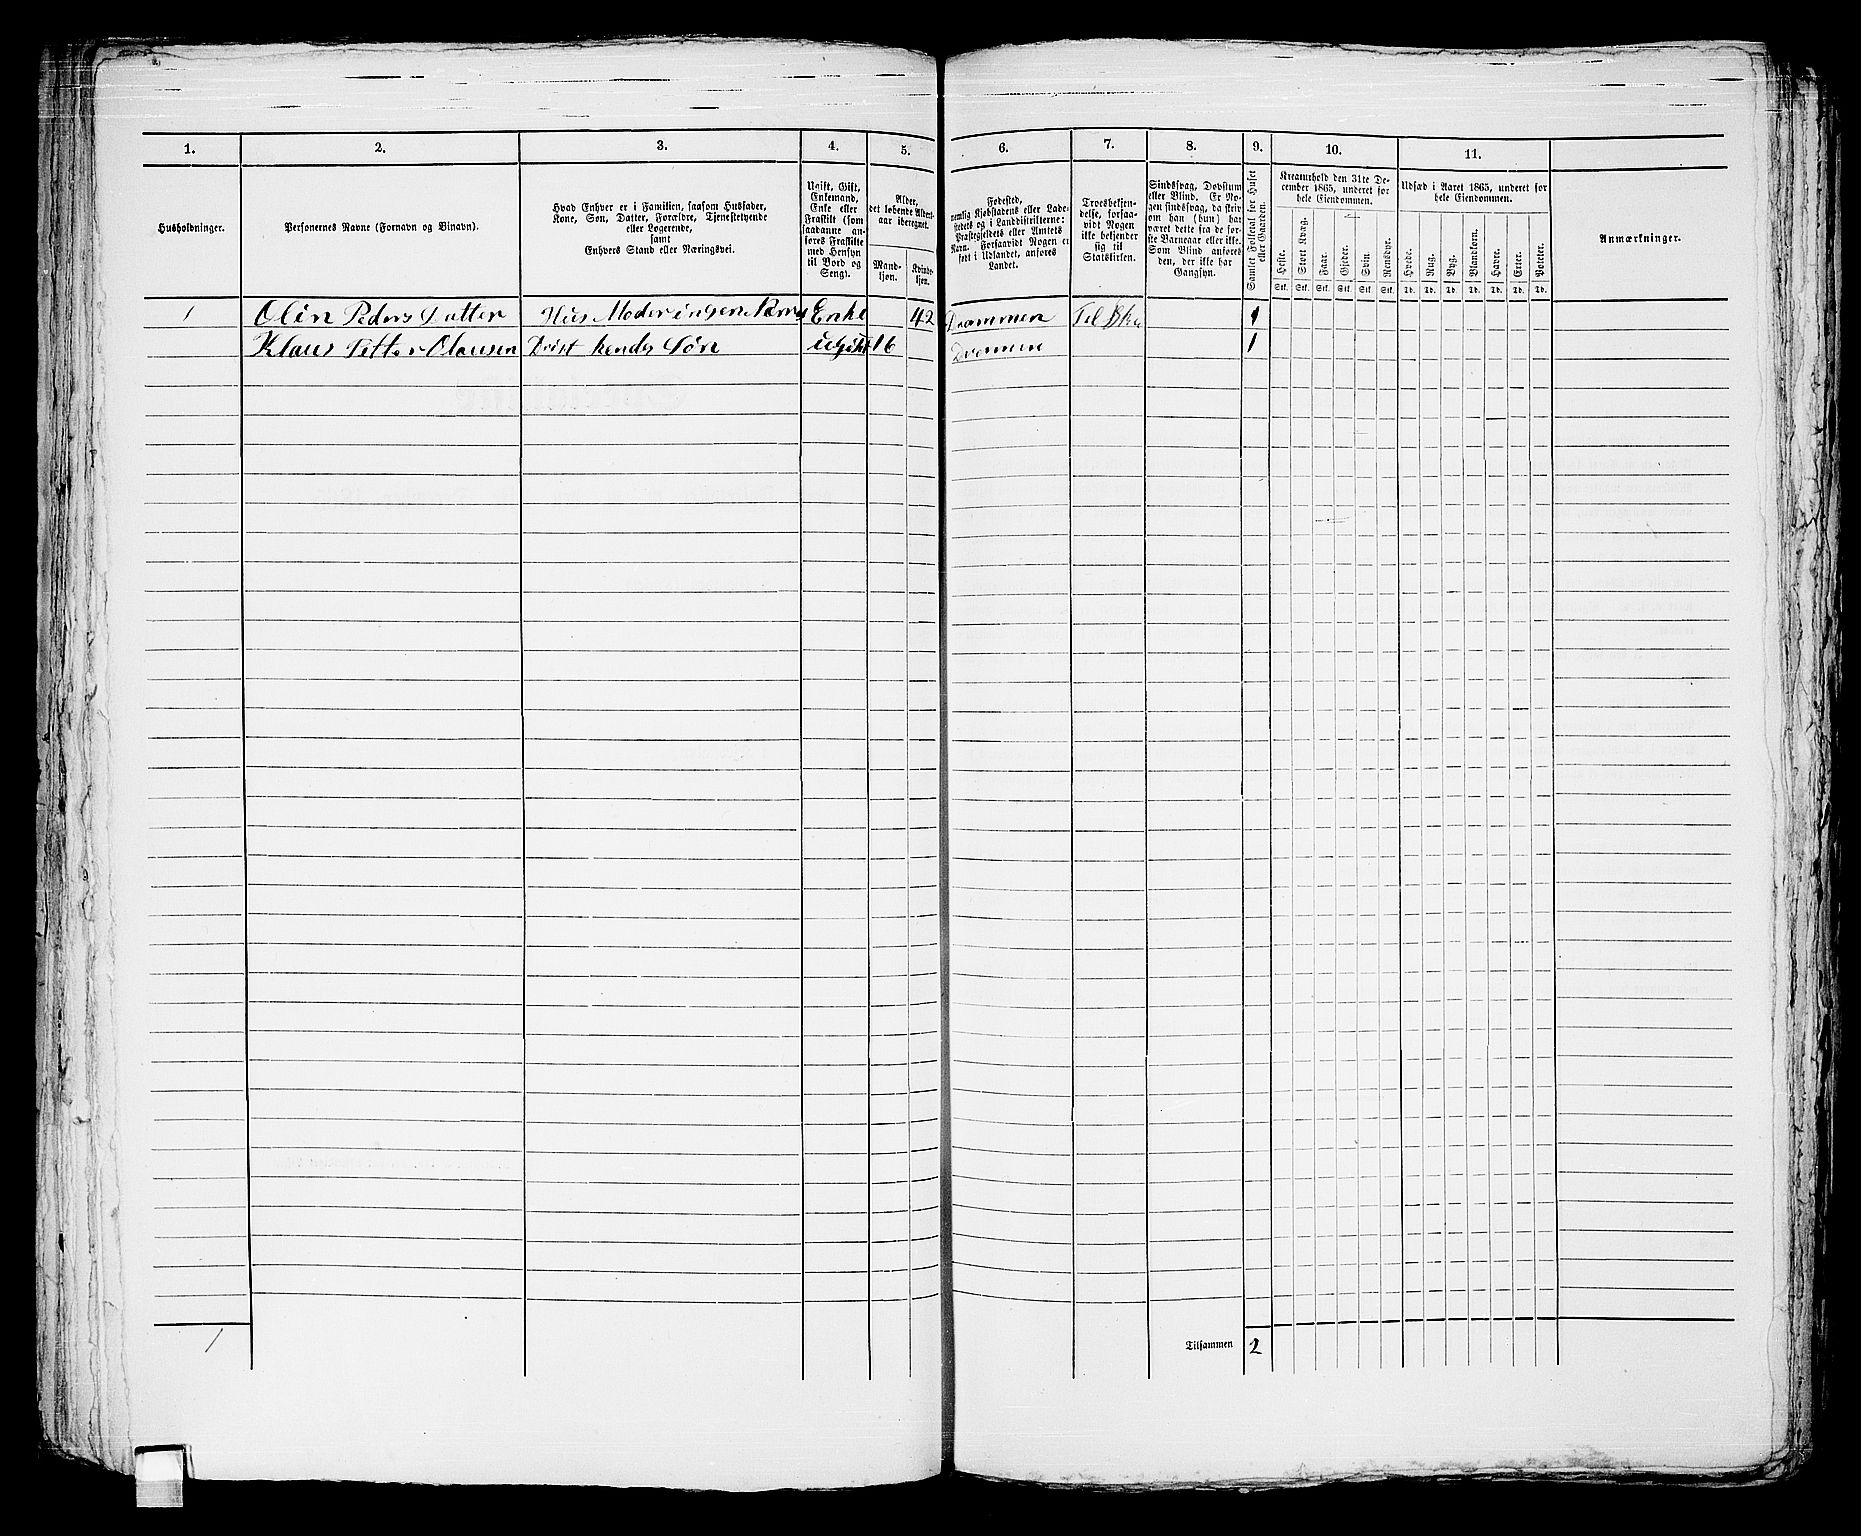 1. 2. 3. 4. 5. 6. 7. 8. 9. 10. 11.
Husholdninger.
Personernes Navne (Fornavn og Binavn).
Hvad Enhver er i Familien, saasom Husfader,
Kone, Søn, Datter, Forældre, Tjenestetyende
eller Logerende,
samt
Enhvers Stand eller Næringsvei.
Ugift, Gift,
Enkemand,
Enke eller
Fraskilt (som
saadanne an-
føres Fraskilte
med Hensyn
til Bord og
Seng).
Alder,
det løbende Alders-
aar iberegnet.
Mand-
kjøn.
Kvinde-
kjøn.
Fødested,
nemlig Kjøbstadens eller Lade-
stedets og i Landdistrikterne:
Præstegjeldets eller Amtets
Navn. Forsaavidt Nogen er
født i Udlandet, anføres
Landet.
Troesbekjen-
delse, forsaa-
vidt Nogen
ikke bekjender
sig til
Statskirken.
Sindssvag, Døvstum
eller Blind. Er No-
gen sindssvag, da skriv
om han (hun) har
været dette fra de før-
ste Barneaar eller ikke.
Som Blind anføres
den, der ikke har
Gangsyn.
Samlet Folketal for Huset
eller Gaarden.
Kreaturhold den 31te De-
cember 1865, underet for
hele Eiendommen.
Heste. Stort Kvæg. Faar. Gjeder. Svin. Rensdyr.
Stk. Stk. Stk. Stk. Stk. Stk.
Udsæd i Aaret 1865, underet for
hele Eiendommen.
Hvede. Rug. Byg. Blandkorn. Havre. Erter. Poteter.
Td. Td. Td. Td. Td. Td. Td.
Anmærkninger.
1 Olin Peders Datter Hus Moder ingen Nærng Enke 42 Drammen 1
Klaus Petter Olausen hendes Søn ugift 16 Drammen 1
1 Tilsammen 2